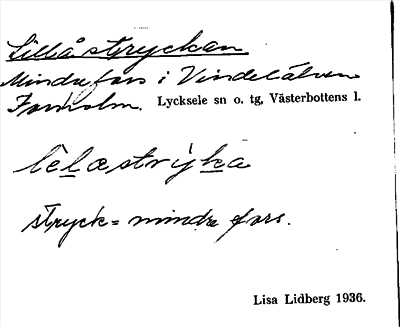 Lillåstryckan
Mindre fors i Vindelälven
Forsholm. Lycksele sn o. tg, Västerbottens l.
lelastrýka
stryck = mindre fors.
Lisa Lidberg 1936.